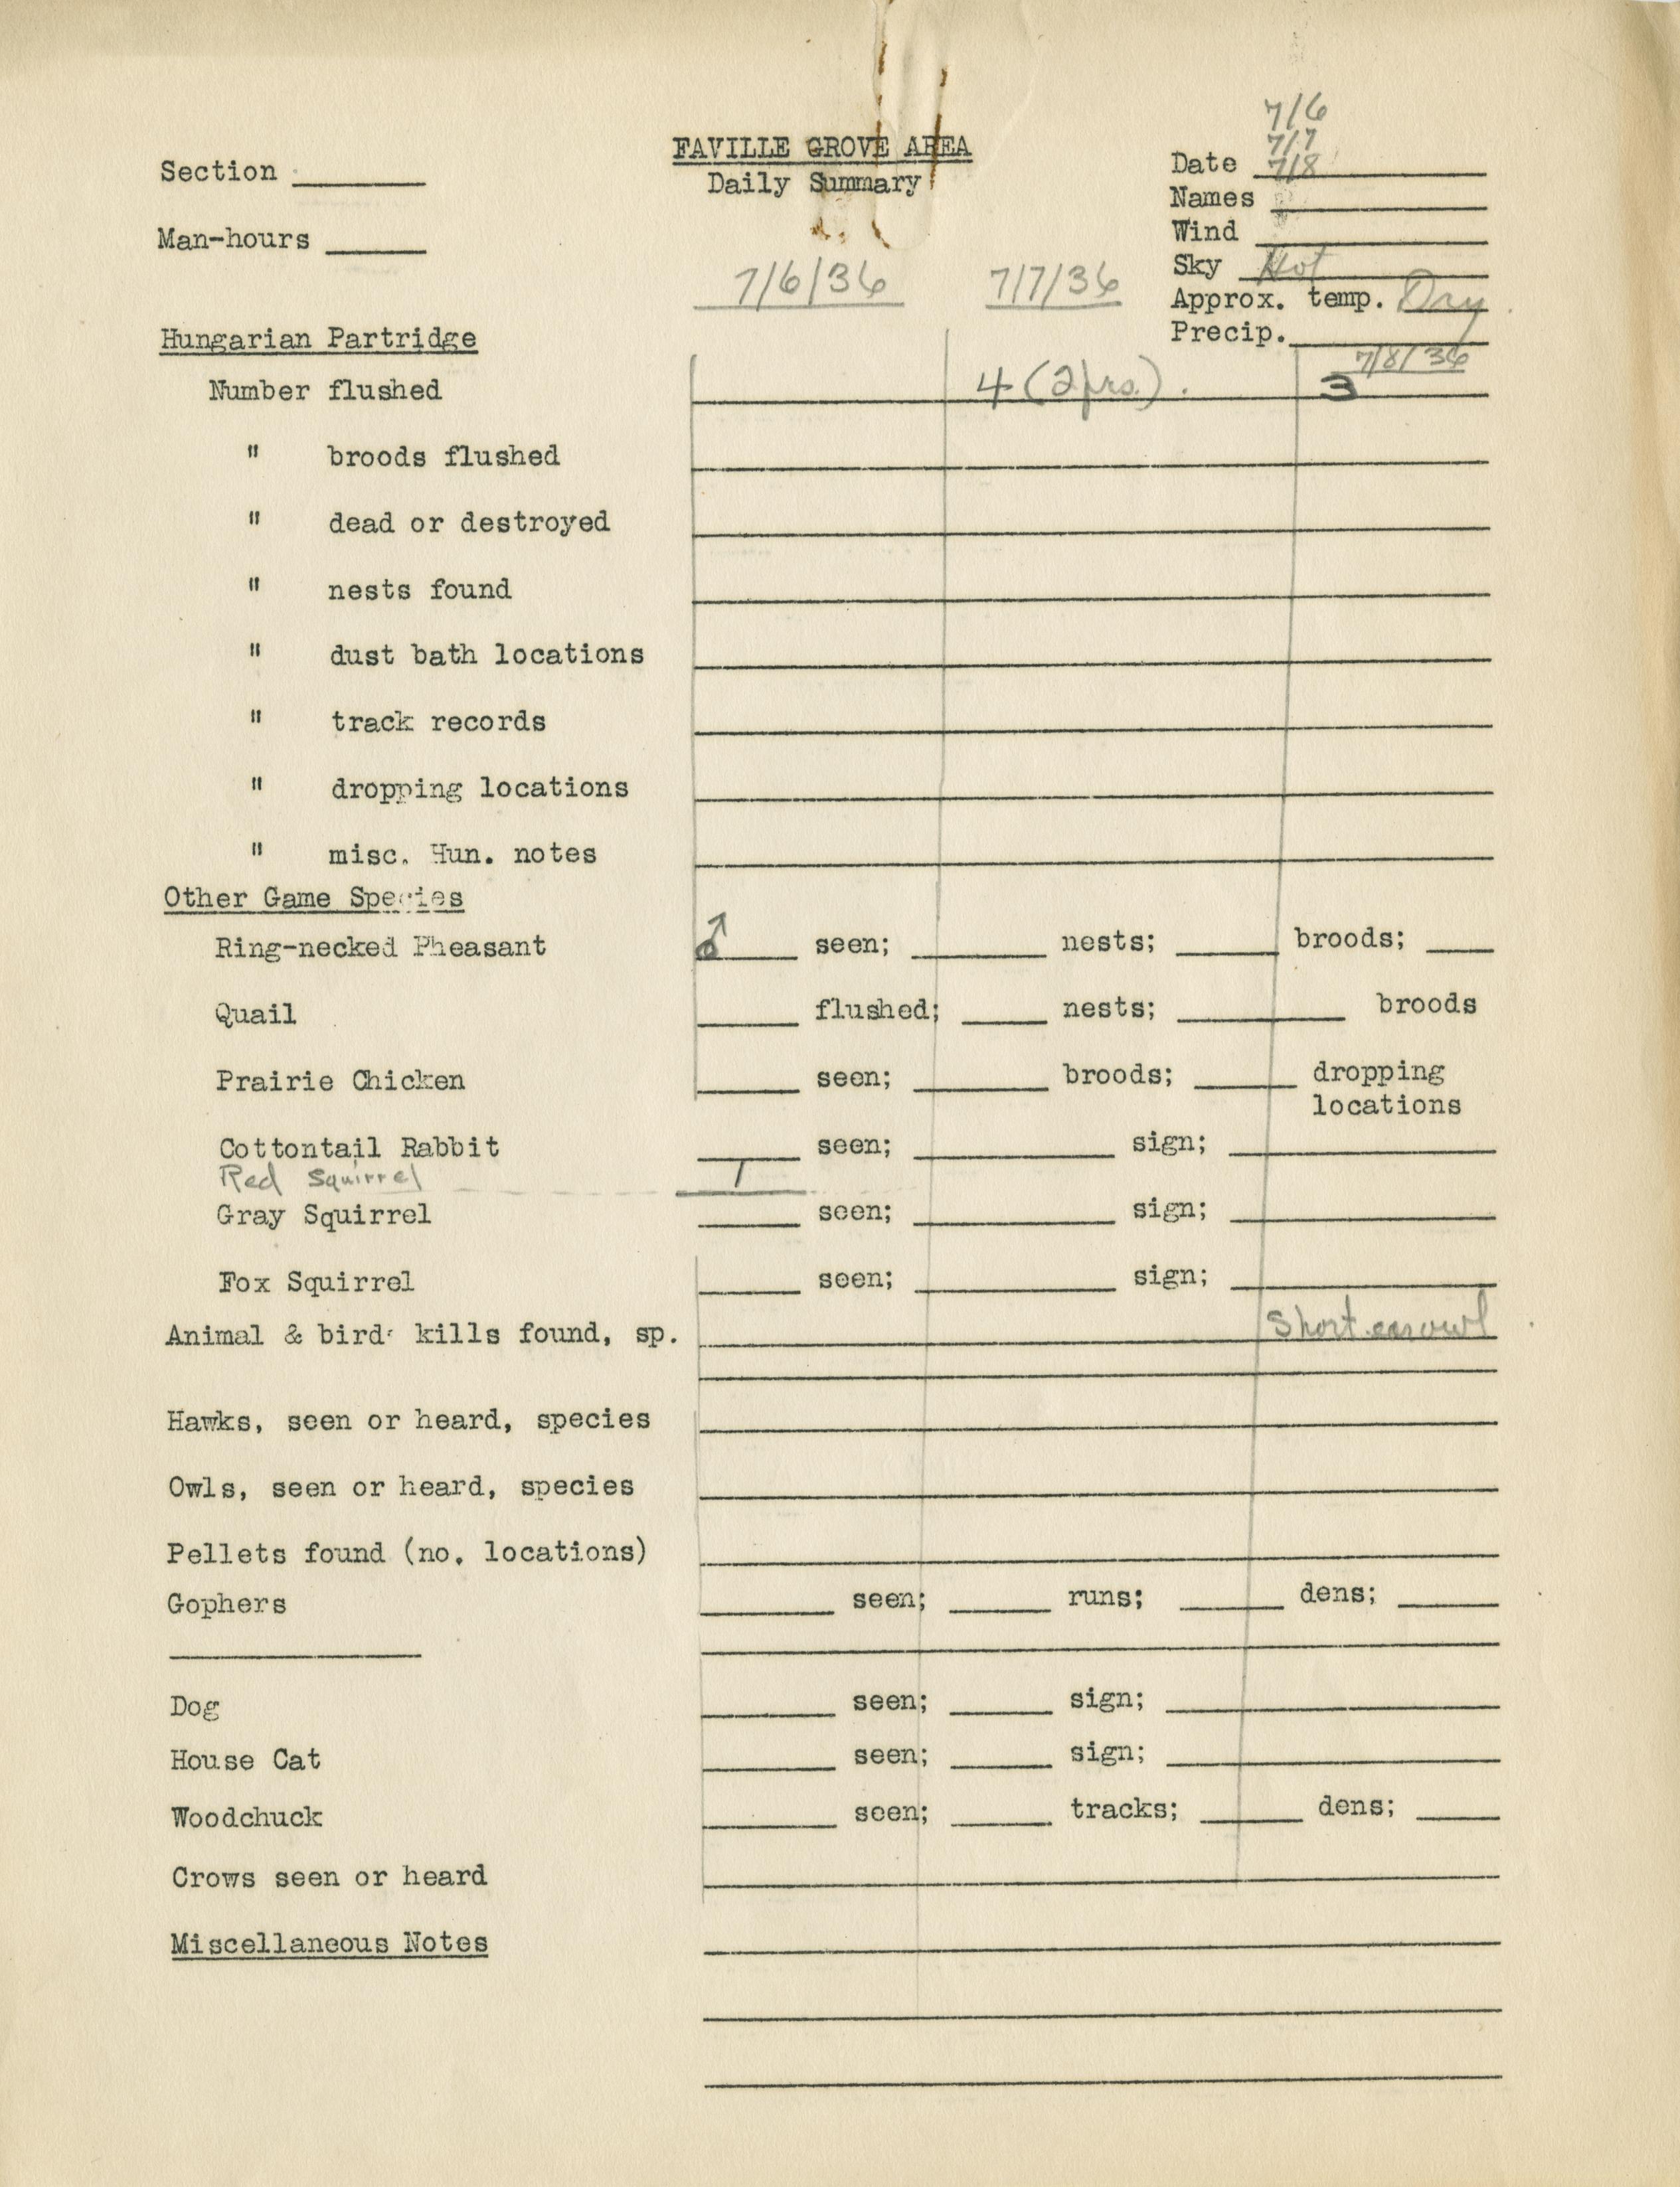 7/6
7/7
FAVILLE GROVE AREA
Section Date 7/8
Daily Summary
Names
Man-hours Wind
Sky Hot
7/6/36 7/7/36 Approx. temp. Dry
Precip.
Hungarian Partridge 7/8/36
Number flushed 4 (2 prs.). 3
" broods flushed
" dead or destroyed
" nests found
" dust bath locations
" track records
" dropping locations
" misc. Hun. notes
Other Game Species
Ring-necked Pheasant ♂ seen; nests; broods;
Quail flushed; nests; broods
Prairie Chicken seen; broods; dropping
locations
Cottontail Rabbit seen; sign;
Red Squirrel 1
Gray Squirrel seen; sign;
Fox Squirrel seen; sign;
Animal & bird kills found, sp. Short ear owl
Hawks, seen or heard, species
Owls, seen or heard, species
Pellets found (no. locations)
Gophers seen; runs; dens;
Dog seen; sign;
House Cat seen; sign;
Woodchuck seen; tracks; dens;
Crows seen or heard
Miscellaneous Notes